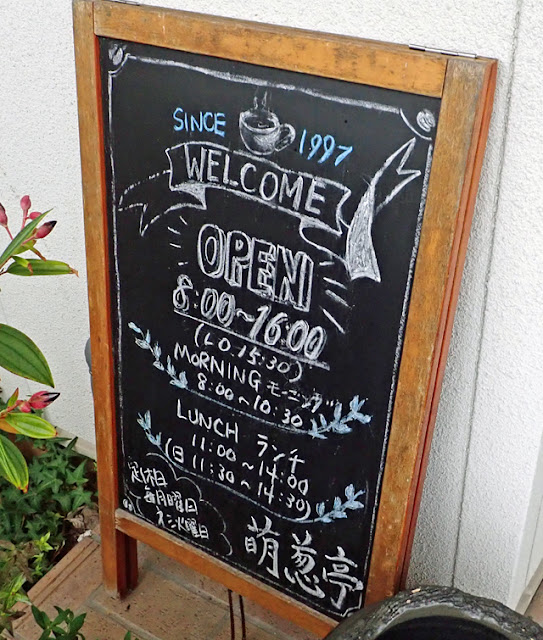 SINCE 1997
WELCOME
OPEN
8:00～16:00
(LO.15:30)
MORNING モーニング
8:00～10:30
LUNCH ランチ
11:00～14:00
(日 11:30～14:30)
定休日
毎月曜日
火曜日
萌葱亭